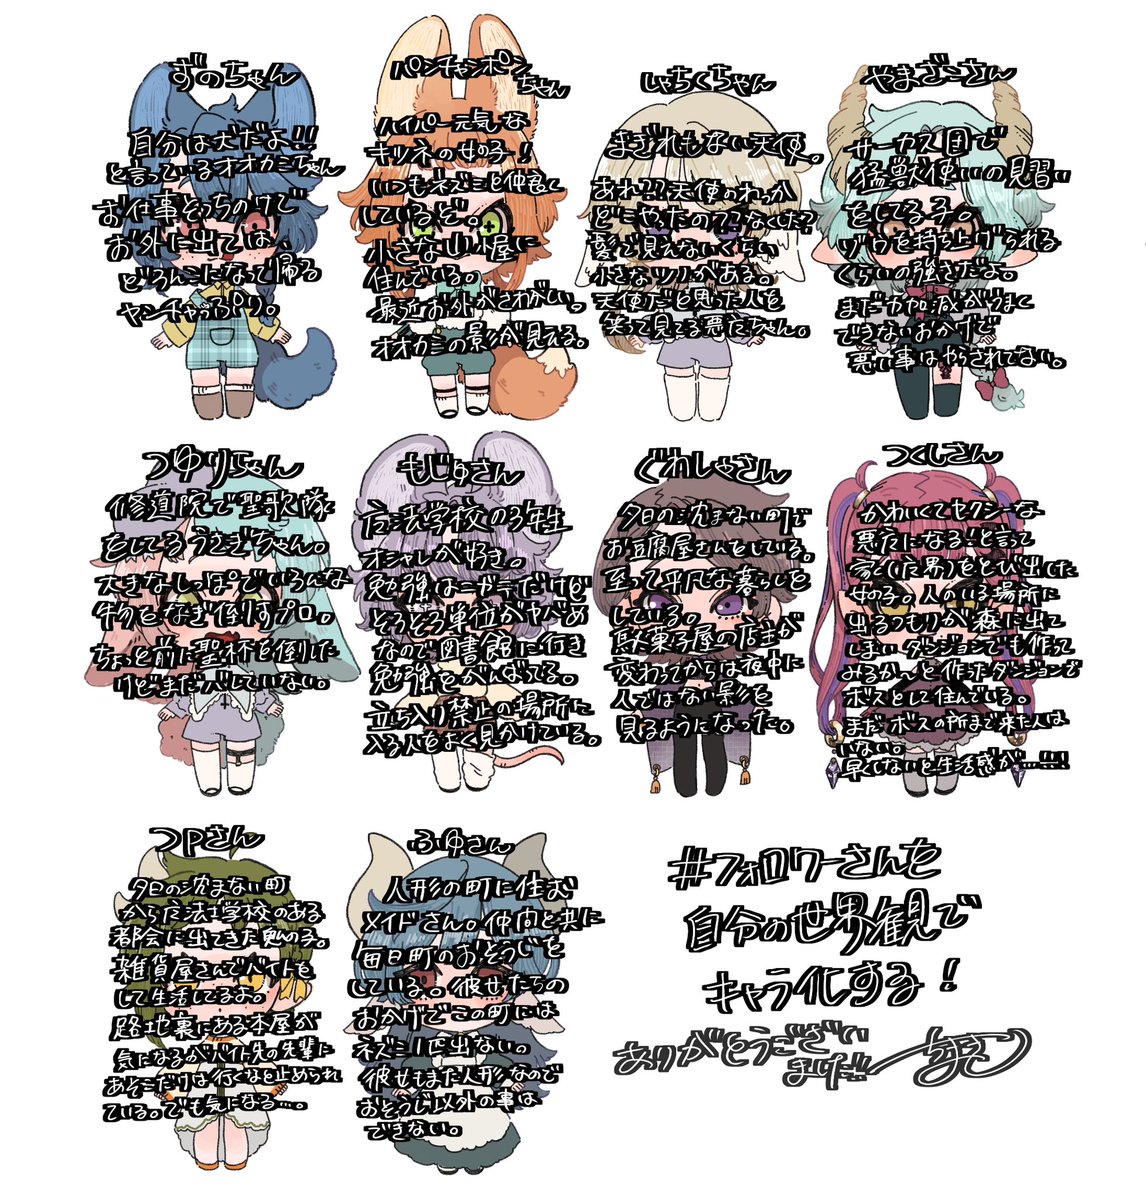 ずのちゃん
自分は犬だよ!!
と言っているオオカミちゃん
お仕事そっちのけで
お外に出ては、
どろんこになって帰る
ヤンチャっぷり。
パンチャンポン
ちゃん
ハイパー元気な
キツネの女の子!
いつもネズミと仲良く
しているぞ。
小さな小屋に
住んでいる。
最近お外がさわがしい。
オオカミの影が見える。
しゃちくちゃん
まぎれもない天使。
あれ??天使のわっか
どこやったの?????
髪で見えないくらい
小さなツノがある。
天使だと思った人を
笑って見てる悪だちゃん。
やまごこさん
サーカス団で
猛獣使いの見習い
をしてる子。
ゾウを持ち上げられる
くらいの強さだよ。
まだ力加減がうまく
できないおかげで
悪い事はやらされてない。
つゆりちゃん
修道院で聖歌隊
をしてるうさぎちゃん。
大きなしっぽでいろんな
物をなぎ倒すプロ。
ちょと前に聖杯も倒した
けどまだバレていない。
もじゅさん
魔法学校の3年生
オシャレが好き。
勉強は苦手だけど
そろそろ単位がヤバめ
なので図書館に行き
勉強をがんばってる。
立ち入り禁止の場所に
入る人をよく見かけている。
ぐわしゃさん
夕日の沈まない町で
お豆腐屋さんをしている。
至って平凡な暮らしを
している。
駄菓子屋の店主が
変わってからは夜中に
人ではない影を
見るようになった。
つくしさん
かわいくてセクシーな
悪党になる!と言って
家(した界)をとび出した
女の子。人のいる場所に
出るつもりが森に出て
しまいダンジョンでも作って
みるかーっと作ったダンジョンで
ボスとして住んでいる。
まだボスの所まで来た人は
いない。
早くしないと生活感が…!!!
つpさん
夕日の沈まない町
から魔法学校のある
都会に出てきた鬼の子。
雑貨屋さんでバイトを
して生活してるよ。
路地裏にある本屋が
気になるがバイト先の先輩に
あそこだけは行くなと止められ
ている。でも気になる…。
ふゆさん
人形の町に住む
メイドさん。仲間と共に
毎日町のおそうじを
している。彼女たちの
おかげでこの町には
ネズミ1匹出ない。
彼女もまた人形なので
おそうじ以外の事は
できない。
#フォロワーさんを
自分の世界観で
キャラ化する!
ありがとうござい
ました!!